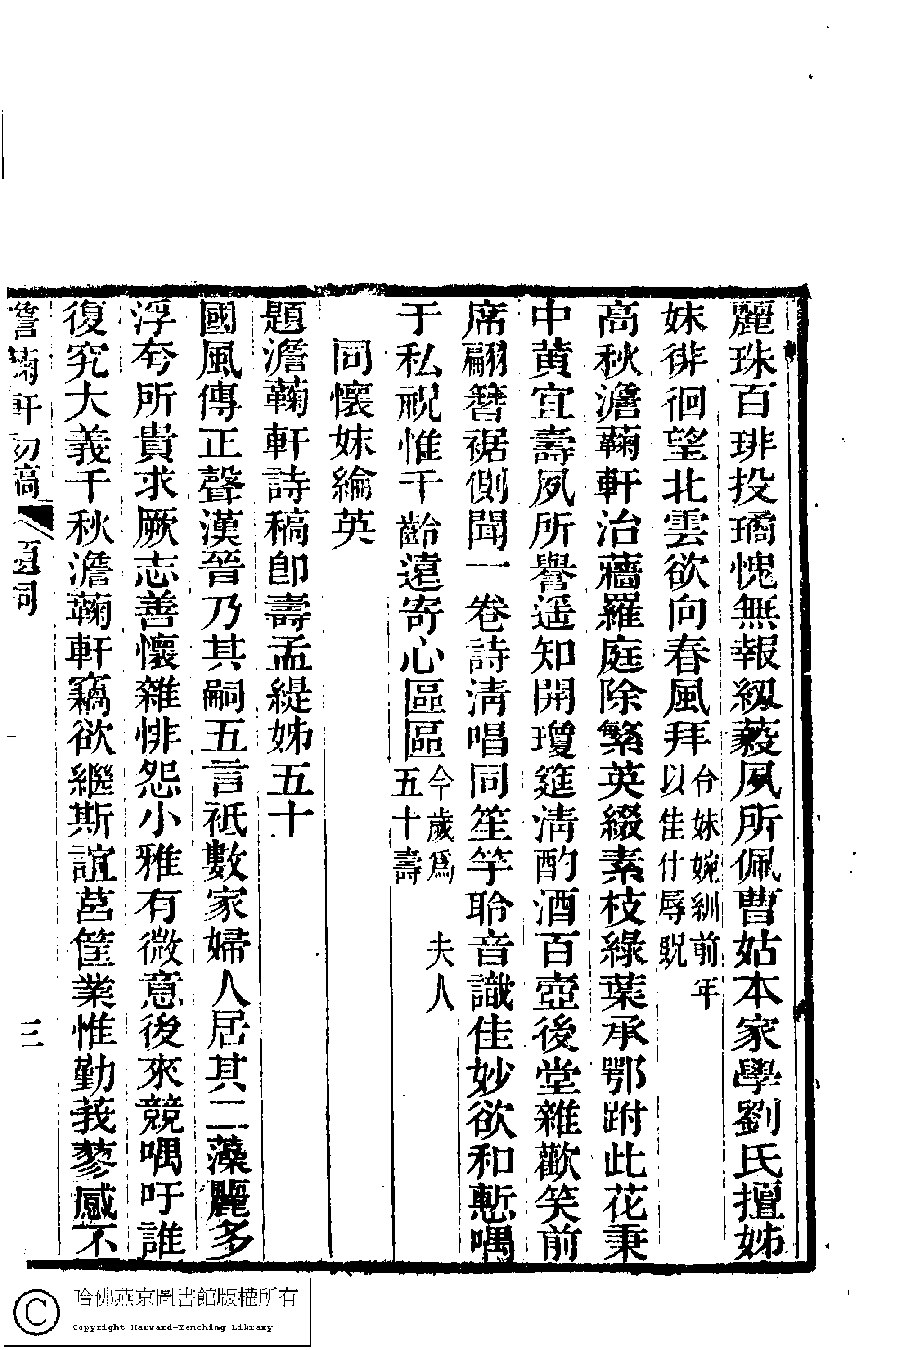 麗珠百琲投璚愧無報紉蕤夙所佩曹姑本家學劉氏擅姊
妹徘徊望北雲欲向春風拜台妹婉紃前年
以佳什辱貺
高秋澹蘜軒治蘠羅庭除繁英綴素枝綠葉承鄂跗此花秉
中黄宜壽夙所譽遥知開瓊筵淸酌酒百壺後堂雜歡笑前
席翩簪裾側聞一卷詩淸唱同笙竽聆音識佳妙欲和慙喁
于私祝惟千齡遠寄心區區今歲爲 夫人
五十壽
同懷妹綸英
題澹蘜軒詩稿卽壽孟緹姊五十
國風傳正聲漢晉乃其嗣五言祇數家婦人居其二藻麗多
浮夸所貴求厥志善懷雜悱怨小雅有微意後來競喁吁誰
復究大義千秋澹蘜軒竊欲繼斯誼莒筐業惟勤莪蓼感不
澹蘜軒初稿 題詞 三
哈佛燕京圖書館版權所有
Copyright Harvard-Yenching Library